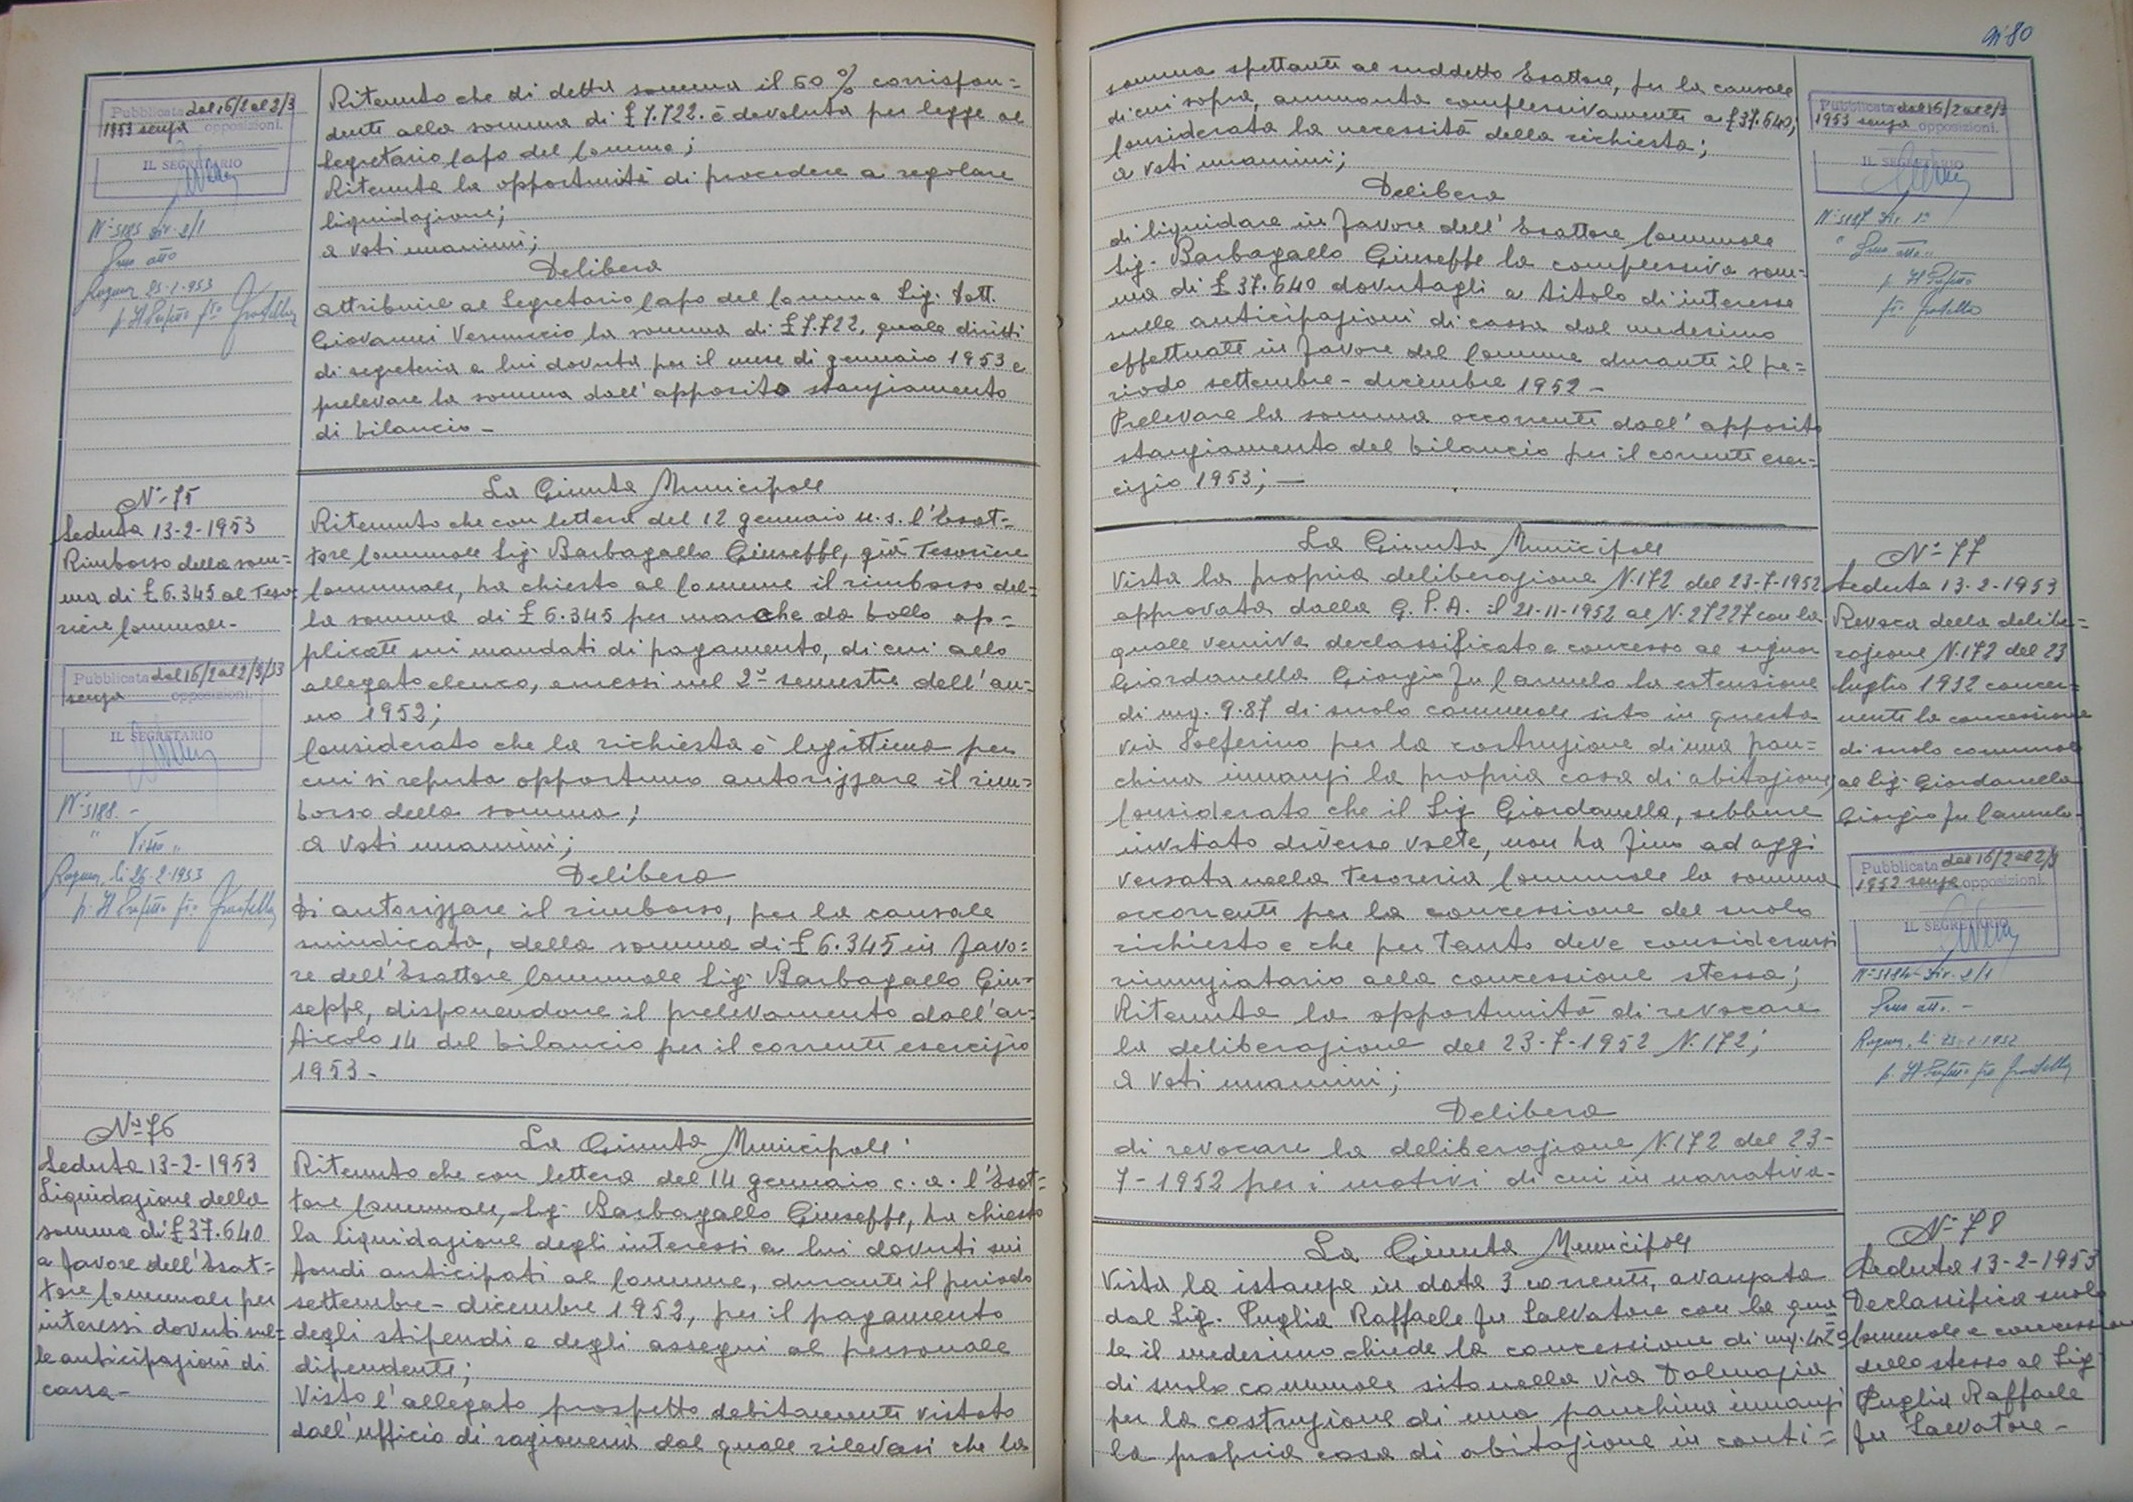 Pubblicata dal 16/2 al 2/3
1953 senza opposizioni.
IL SEGRETARIO
N° 5185 Div. 2/1
Preso atto
Ragusa 25-2-1953
p. Il Prefetto fto
Ritenuto che di detta somma il 50% corrispon=
dente alla somma di £ 7.722. è devoluta per legge al
Segretario Capo del Comune;
Ritenuta la opportunità di procedere a regolare
liquidazione;
a voti unanimi;
Delibera
attribuire al Segretario Capo del Comune Sig. Dott.
Giovanni Vernuccio la somma di £ 7.722, quale diritti
di segreteria a lui dovuta per il mese di gennaio 1953 e
prelevare la somma dall'apposito stanziamento
di bilancio -
N° 75
Seduta 13-2-1953
Rimborso della som=
ma di £ 6.345 al Teso
riere Comunale.
Pubblicata dal 16/2 al 2/3/53
senza opposizioni.
IL SEGRETARIO
N° 5188. -
" Visto "
Ragusa, li 25-2-1953
p. Il Prefetto fto
La Giunta Municipale
Ritenuto che con lettera del 12 gennaio u.s. l'Esat=
tore Comunale Sig. Barbagallo Giuseffe, già Tesoriere
Comunale, ha chiesto al Comune il rimborso del=
la somma di £ 6.345 per marche da bollo ap=
plicate sui mandati di pagamento, di cui allo
allegato elenco, emessi nel 2° semestre dell'an=
no 1952;
Considerato che la richiesta è legittima per
cui si reputa opportuno autorizzare il rim=
borso della somma;
a voti unanimi;
Delibera
Di autorizzare il rimborso, per la causale
suindicata, della somma di £ 6.345 in favo=
re dell'Esattore Comunale Sig. Barbagallo Giu=
seppe, disponendone il prelevamento dall'ar=
ticolo 14 del bilancio per il corrente esercizio
1953 -
N° 76
Seduta 13-2-1953
Liquidazione della
somma di £ 37.640
a favore dell'Esat=
tore Comunale per
interessi dovuti sul=
le anticipazioni di
cassa -
La Giunta Municipale
Ritenuto che con lettera del 14 gennaio c.a. l'Esat=
tore Comunale, Sig. Barbagallo Giuseffe, ha chiesto
la liquidazione degli interessi a lui dovuti sui
fondi anticipati al Comune, durante il periodo
settembre - dicembre 1952, per il pagamento
degli stipendi e degli assegni al personale
dipendente;
Visto l'allegato prospetto debitamente vistato
dall'ufficio di ragioneria dal quale rilevasi che la
N° 80
somma spettante al suddetto Esattore, per la causale
di cui sopra, ammonta complessivamente a £ 37.640;
Considerata la necessità della richiesta;
a voti unanimi;
Delibera
di liquidare in favore dell'Esattore Comunale
Sig. Barbagallo Giuseffe la complessiva som=
ma di £ 37.640 dovutagli a titolo di interesse
sulle anticipazioni di cassa dal medesimo
effettuate in favore del Comune durante il pe=
riodo settembre - dicembre 1952 -
Prelevare la somma occorrente dall'apposito
stanziamento del bilancio per il corrente eser=
cizio 1953; -
Pubblicata dal 16/2 al 2/3
1953 senza opposizioni.
IL SEGRETARIO
N° 5187 Div. 1°
" Preso atto "
p. Il Prefetto
fto
La Giunta Municipale
Vista la propria deliberazione N. 172 del 23-7-1952
approvata dalla G.P.A. il 21-11-1952 al N. 27227 con la
quale veniva declassificato e concesso al signor
Giordanella Giorgio fu Carmelo la estensione
di mq. 9.87 di suolo comunale sito in questa
Via Solferino per la costruzione di una pan=
china innanzi la propria casa di abitazione;
Considerato che il Sig. Giordanella, sebbene
invitato diverse volte, non ha fino ad oggi
versata nella Tesoreria Comunale la somma
occorrente per la concessione del suolo
richiesto e che per tanto deve considerarsi
rinunziatario alla concessione stessa;
Ritenuta la opportunità di revocare
la deliberazione del 23-7-1952 N. 172;
a voti unanimi;
Delibera
di revocare la deliberazione N. 172 del 23-
7-1952 per i motivi di cui in narrativa -
N° 77
Seduta 13-2-1953
Revoca della delibe=
razione N. 172 del 23
luglio 1952 concer=
nente la concessione
di suolo comunale
al Sig. Giordanella
Giorgio fu Carmelo -
Pubblicata dal 16/2 al 2/3
1952 senza opposizioni.
IL SEGRETARIO
N° 5184 Div. 2/1
Preso atto. -
Ragusa, li 25-2-1952
p. Il Prefetto fto
La Giunta Municipale
Vista la istanza in data 3 corrente, avanzata
dal Sig. Puglia Raffaele fu Salvatore con la qua
le il medesimo chiede la concessione di mq.
di suolo comunale sito nella Via Dalmazia
per la costruzione di una panchina innanzi
la propria casa di abitazione in conti=
N° 78
Seduta 13-2-1953
Declassifica suolo
Comunale e concessione
dello stesso al Sig.
Puglia Raffaele
fu Salvatore -